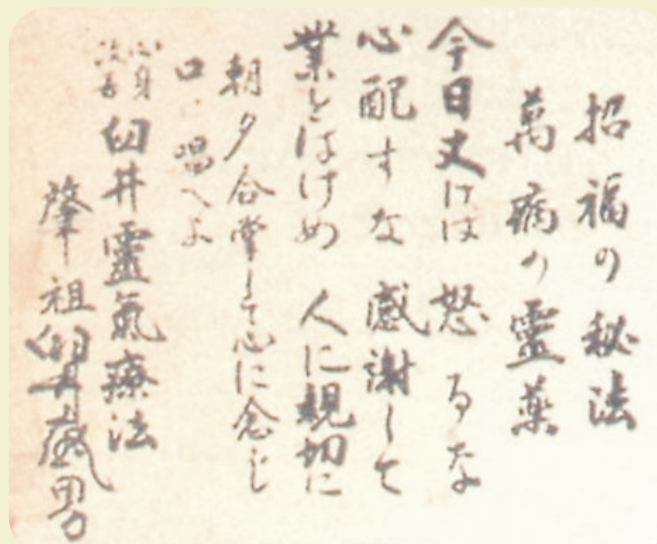 招福の秘法
萬病の霊薬
今日丈けは 怒るな
心配すな 感謝して
業をはけめ 人に親切に
朝夕合掌して心に念じ
口に唱へよ
心身
改善
臼井靈氣療法
肇祖臼井甕男